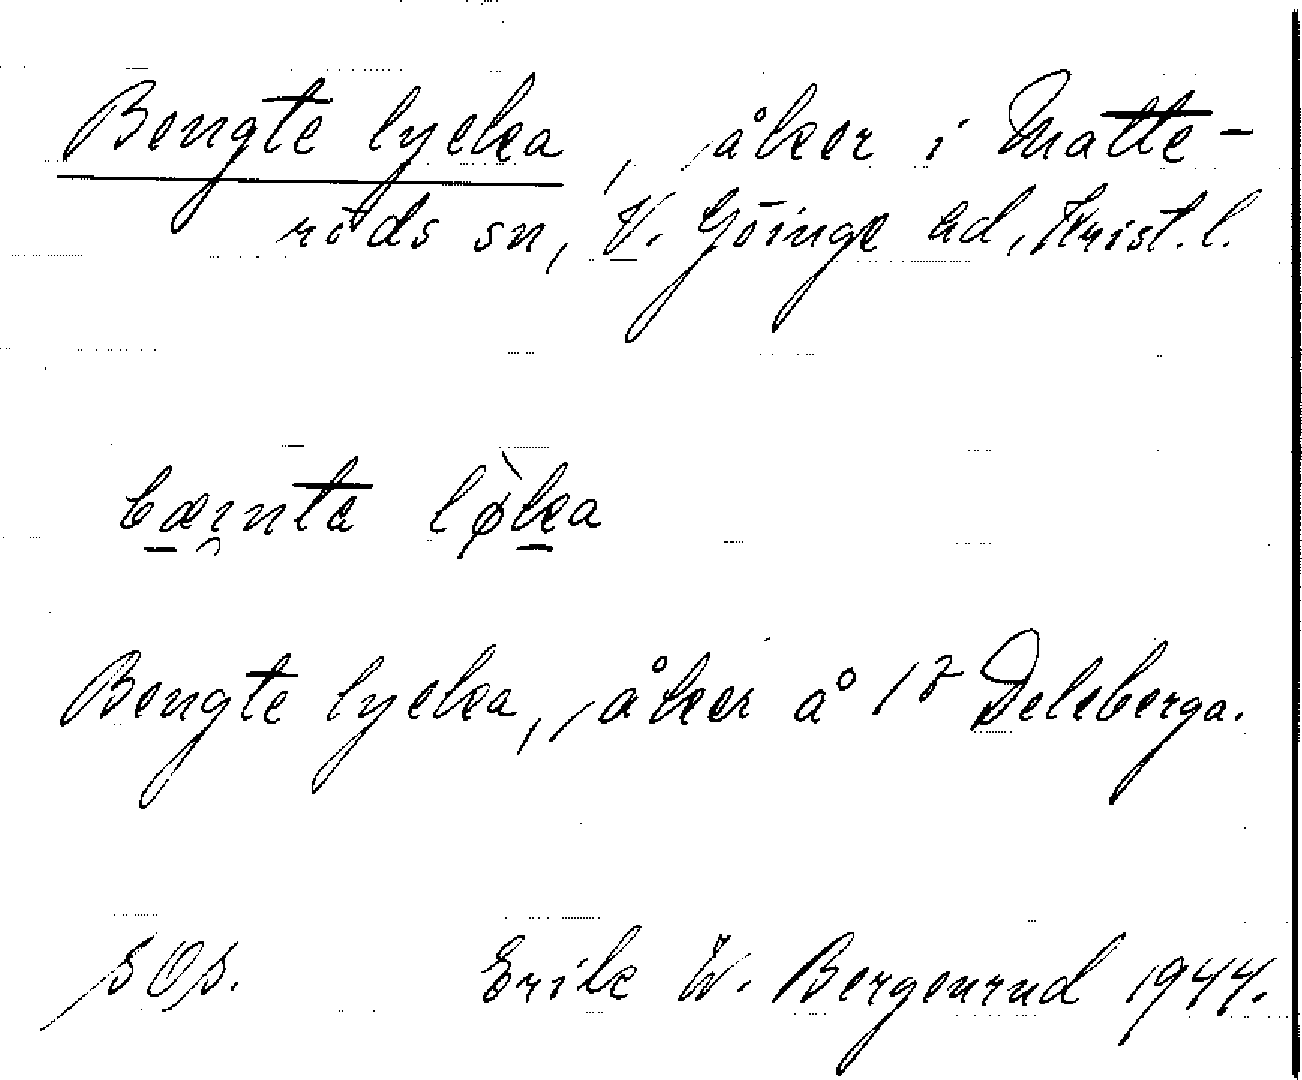 Bengte lycka, åker i Matte-
röds sn, V. Göinge hd, Krist. l.
bæi̯nta lø̀ka
Bengte lycka, åker å 18 Delsberga.
SOS. Erik W. Bergenrud 1944.